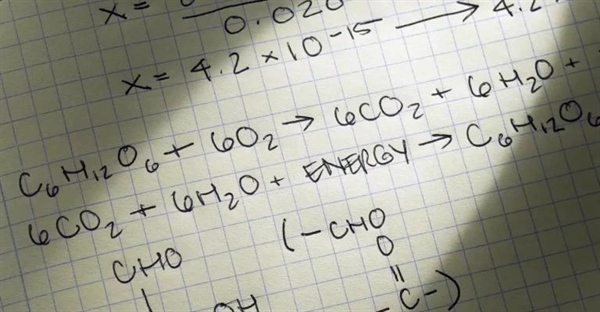 x =
0.020
x = 4.2 × 10⁻¹⁵ → 4.2
C₆H₁₂O₆ + 6O₂ → 6CO₂ + 6H₂O +
6CO₂ + 6H₂O + ENERGY → C₆H₁₂O₆
CHO (-CHO
O
OH - C -)